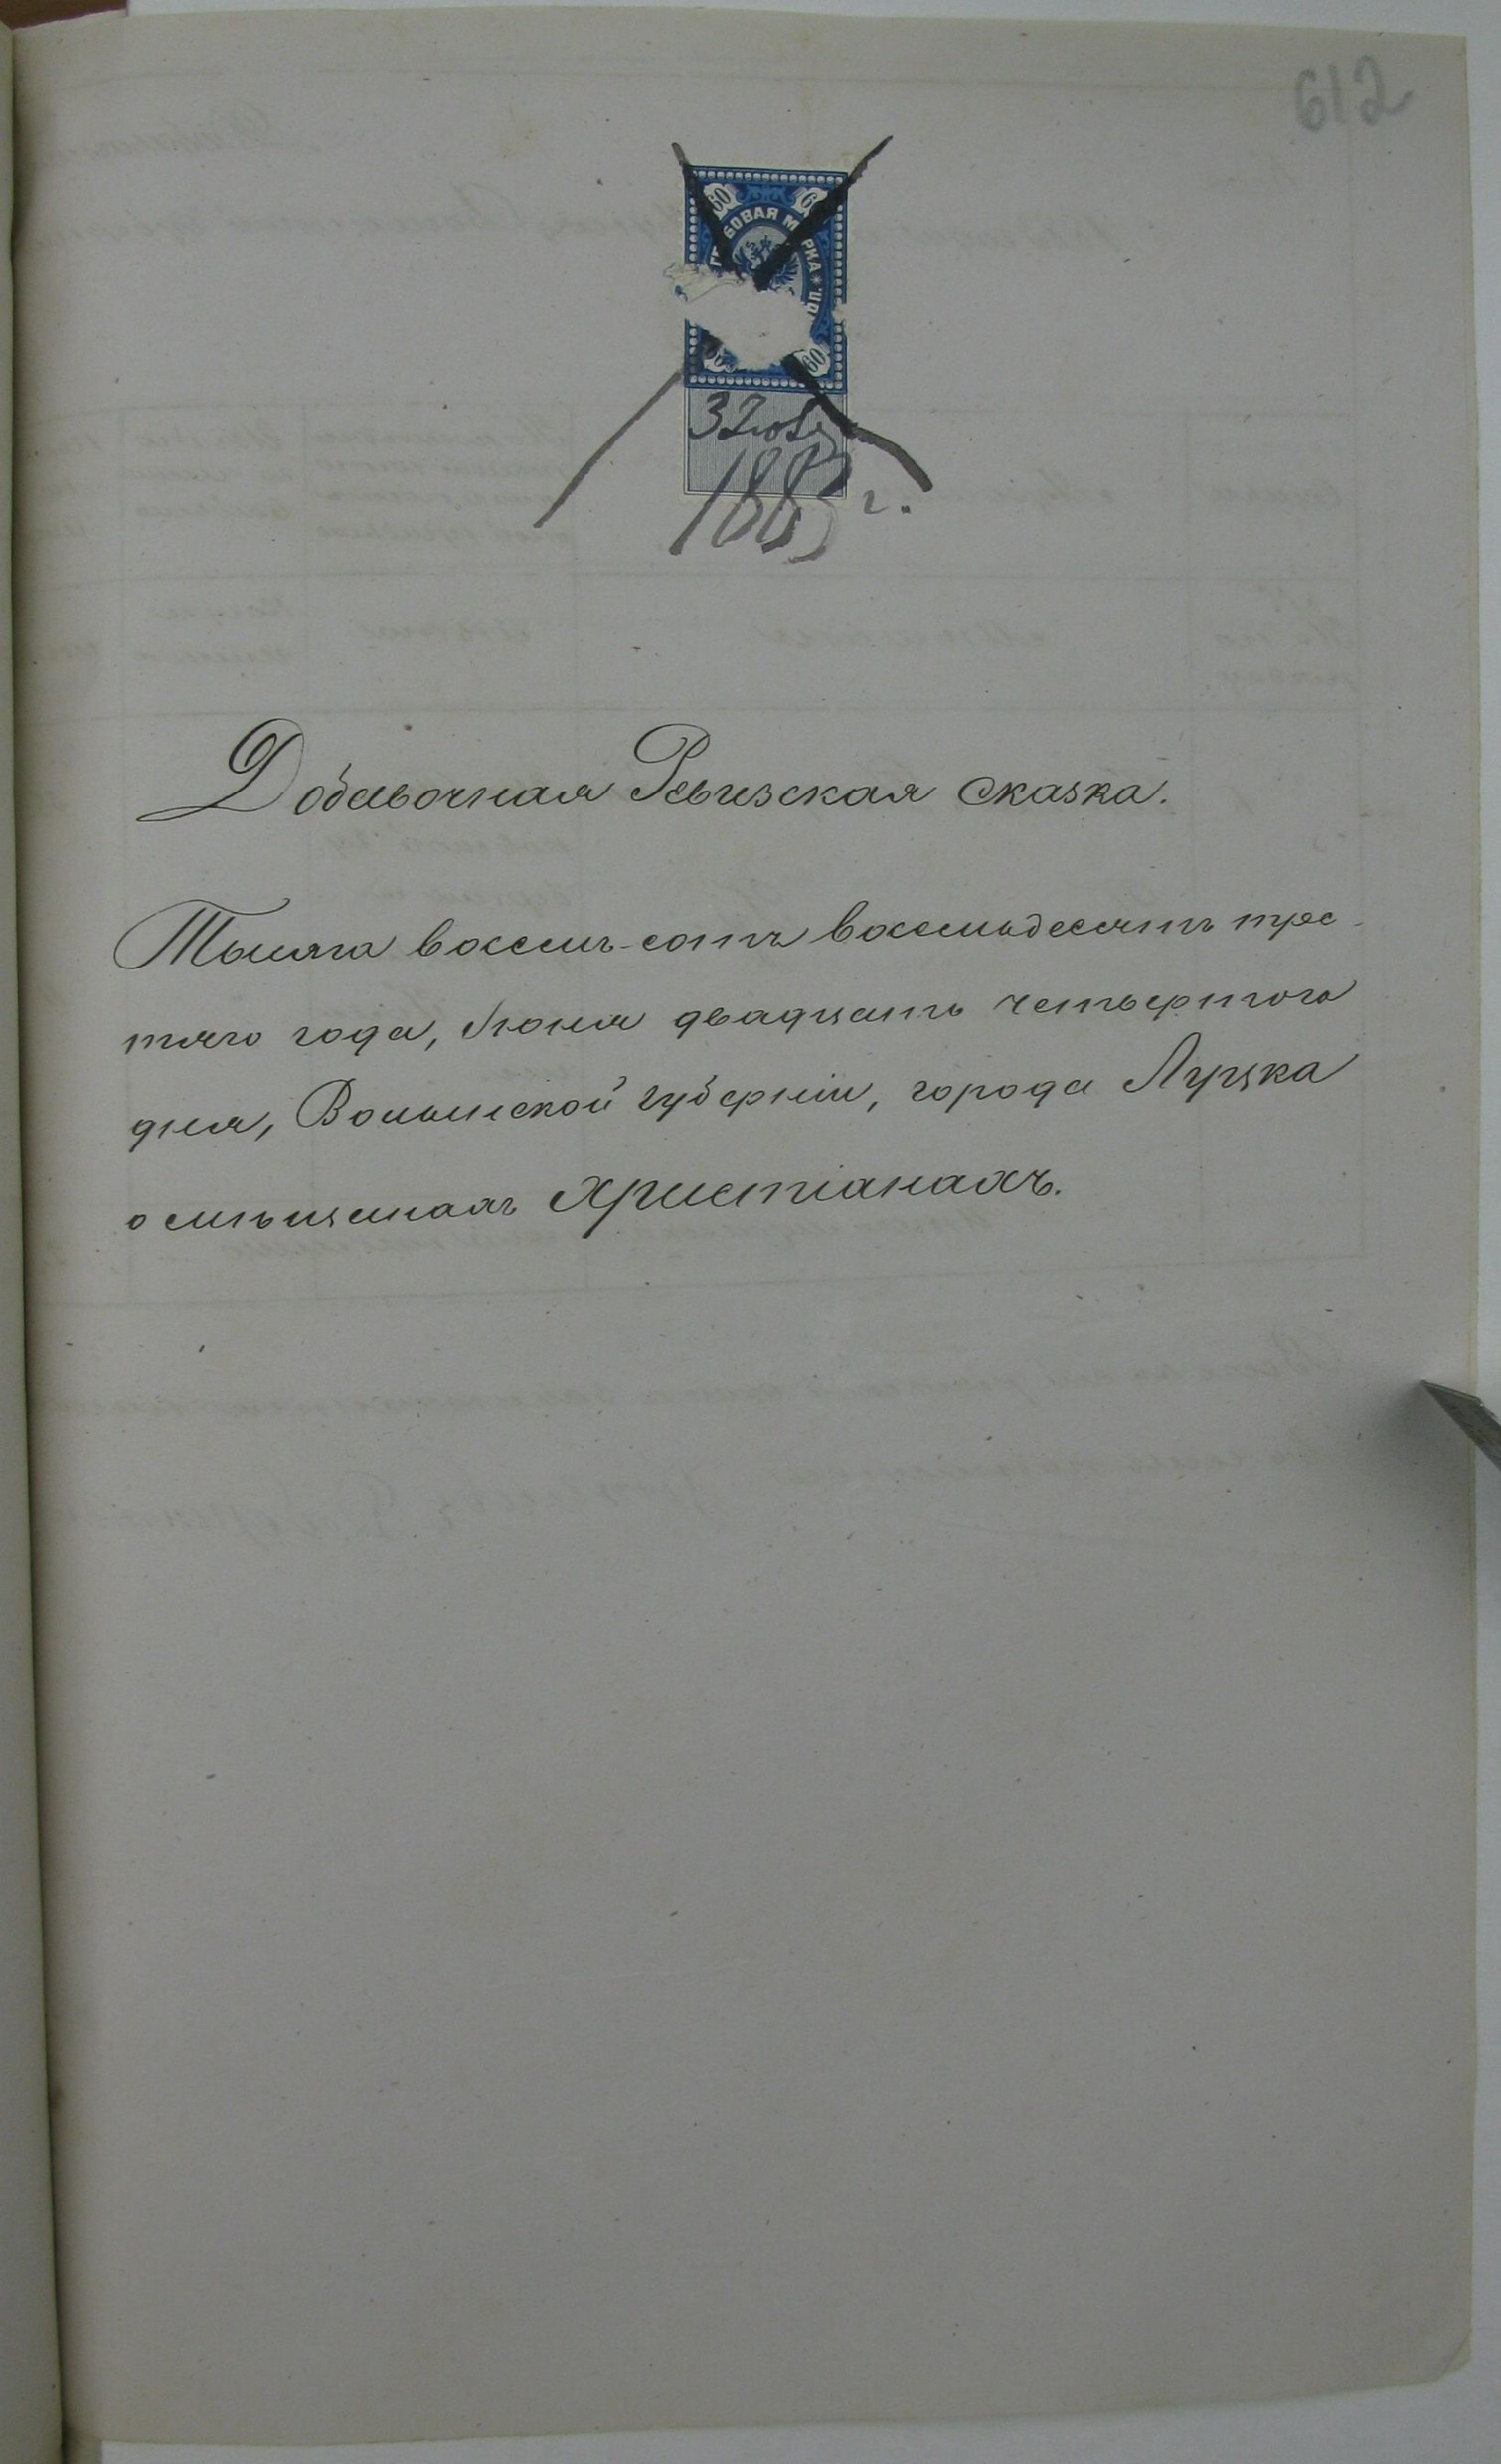 612
60
60
1883 г.
Добавочная Ревизская Сказка.
Тысяча восемь-сотъ восемьдесятъ тре-
тяго года, Іюня двадцать четвертого
дня, Волынской губерніи, города Луцка
о мѣщанахъ Христіанахъ.